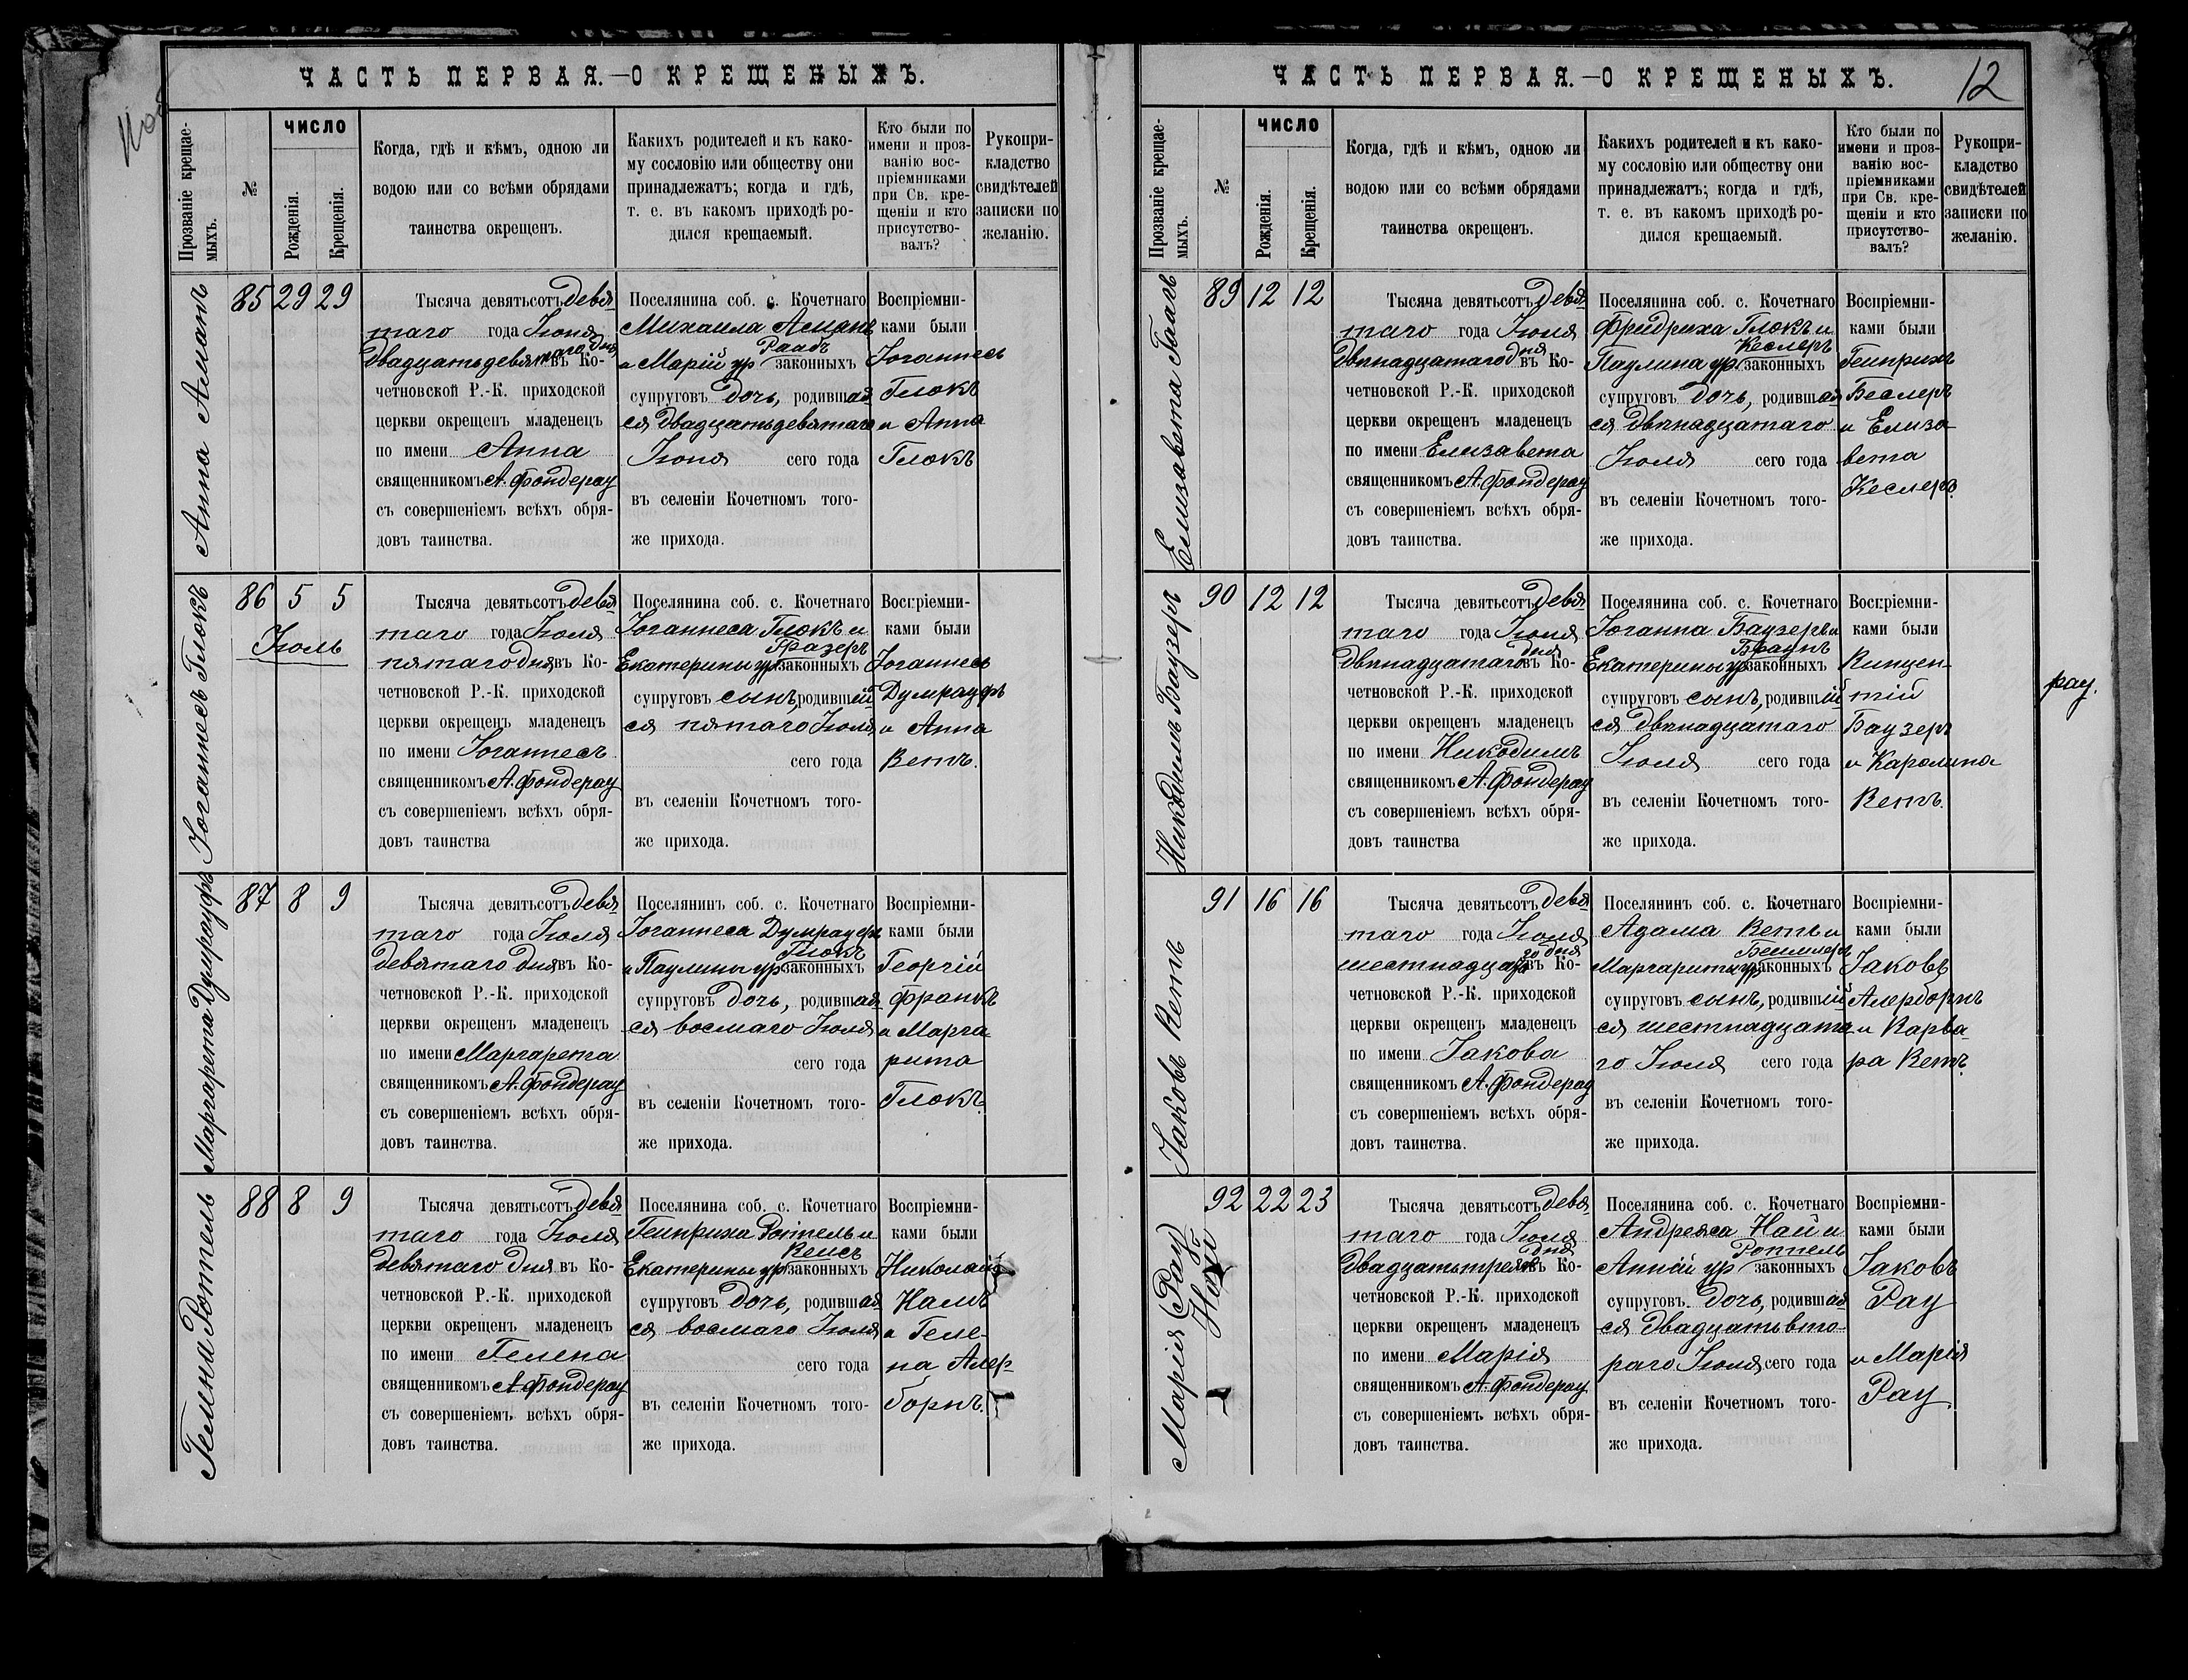 ЧАСТЬ ПЕРВАЯ.—О КРЕЩЕНЫХЪ.
Прозваніе крещае-
мыхъ.
№
ЧИСЛО
Рожденія.
Крещенія.
Когда, гдѣ и кѣмъ, одною ли
водою или со всѣми обрядами
таинства окрещенъ.
Какихъ родителей и къ како-
му сословію или обществу они
принадлежатъ; когда и гдѣ,
т. е. въ какомъ приходѣ ро-
дился крещаемый.
Кто были по
имени и проз-
ванію вос-
пріемниками
при Св. кре-
щеніи и кто
присутство-
валъ?
Рукопри-
кладство
свидѣтелей
записки по
желанію.
Анна Аманъ
85 29 29
Тысяча девятьсотъ девя
таго года Іюня
двадцатьдевятаго дня въ Ко-
четновской Р.-К. приходской
церкви окрещенъ младенецъ
по имени Анна
священникомъ А. Фондерау
съ совершеніемъ всѣхъ обря-
довъ таинства.
Поселянина соб. с. Кочетнаго
Михаила Аманъ
и Маріи ур Раабъ законныхъ
супруговъ дочь, родившая
ся двадцатьдевятаго
Іюня сего года
въ селеніи Кочетномъ того-
же прихода.
Воспріемни-
ками были
Іоганнесъ
Глокъ
и Анна
Глокъ
Іоганнесъ Глокъ
86 5 5
Іюль
Тысяча девятьсотъ девя
таго года Іюля
пятаго дня въ Ко-
четновской Р.-К. приходской
церкви окрещенъ младенецъ
по имени Іоганнесъ
священникомъ А. Фондерау
съ совершеніемъ всѣхъ обря-
довъ таинства
Поселянина соб. с. Кочетнаго
Іоганнеса Глокъ и
Екатерины ур Гразеръ законныхъ
супруговъ сынъ, родившій
ся пятаго Іюля
сего года
въ селеніи Кочетномъ того-
же прихода.
Воспріемни-
ками были
Іоганнесъ
Думрауфъ
и Анна
Ветъ.
Маргарета Думрауфъ
87 8 9
Тысяча девятьсотъ девя
таго года Іюля
девятаго дня въ Ко-
четновской Р.-К. приходской
церкви окрещенъ младенецъ
по имени Маргарета
священникомъ А. Фондерау
съ совершеніемъ всѣхъ обря-
довъ таинства.
Поселянинъ соб. с. Кочетнаго
Іоганнеса Думрауфъ
и Паулины ур Глокъ законныхъ
супруговъ дочь, родившая
ся восмаго Іюля
сего года
въ селеніи Кочетномъ того-
же прихода.
Воспріемни-
ками были
Георгій
Франкъ
и Марга
рита
Глокъ.
Гелена Роттель
88 8 9
Тысяча девятьсотъ девя
таго года Іюля
девятаго дня въ Ко-
четновской Р.-К. приходской
церкви окрещенъ младенецъ
по имени Гелена
священникомъ А. Фондерау
съ совершеніемъ всѣхъ обря-
довъ таинства.
Поселянина соб. с. Кочетнаго
Генриха Роттель и
Екатерины ур законныхъ
супруговъ дочь, родившая
ся восмаго Іюля
сего года
въ селеніи Кочетномъ того-
же прихода.
Воспріемни-
ками были
Николай
и Геле-
на Алер-
борнъ.
ЧАСТЬ ПЕРВАЯ.—О КРЕЩЕНЫХЪ.
12
Прозваніе крещае-
мыхъ.
№
ЧИСЛО
Рожденія.
Крещенія.
Когда, гдѣ и кѣмъ, одною ли
водою или со всѣми обрядами
таинства окрещенъ.
Какихъ родителей и къ како-
му сословію или обществу они
принадлежатъ; когда и гдѣ,
т. е. въ какомъ приходѣ ро-
дился крещаемый.
Кто были по
имени и проз-
ванію вос-
пріемниками
при Св. кре-
щеніи и кто
присутство-
валъ?
Рукопри-
кладство
свидѣтелей
записки по
желанію.
Елизавета
89 12 12
Тысяча девятьсотъ девя
таго года Іюля
двѣнадцатаго дня въ Ко-
четновской Р.-К. приходской
церкви окрещенъ младенецъ
по имени Елизавета
священникомъ А. Фондерау
съ совершеніемъ всѣхъ обря-
довъ таинства.
Поселянина соб. с. Кочетнаго
Фридриха Глокъ и
Паулина ур Кеслеръ законныхъ
супруговъ дочь, родившая
ся двѣнадцатаго
Іюля сего года
въ селеніи Кочетномъ того-
же прихода.
Воспріемни-
ками были
Генрихъ
Беслеръ
и Елиза-
вета
Кеслеръ.
Никодимъ Баузеръ
90 12 12
Тысяча девятьсотъ девя
таго года Іюля
двѣнадцатаго дня въ Ко-
четновской Р.-К. приходской
церкви окрещенъ младенецъ
по имени Никодимъ
священникомъ А. Фондерау
съ совершеніемъ всѣхъ обря-
довъ таинства
Поселянина соб. с. Кочетнаго
Іоганна Баузеръ и
Екатерины ур Браунъ законныхъ
супруговъ сынъ, родившій
ся двѣнадцатаго
Іюля сего года
въ селеніи Кочетномъ того-
же прихода.
Воспріемни-
ками были
Винцен-
тій
Баузеръ
и Каролина
Ветъ.
рау.
Іаковъ Ветъ
91 16 16
Тысяча девятьсотъ девя
таго года Іюля
шестнадцатаго дня въ Ко-
четновской Р.-К. приходской
церкви окрещенъ младенецъ
по имени Іакова
священникомъ А. Фондерау
съ совершеніемъ всѣхъ обря-
довъ таинства.
Поселянинъ соб. с. Кочетнаго
Адама Ветъ и
Маргариты ур законныхъ
супруговъ сынъ, родившій
ся шестнадцата
го Іюля сего года
въ селеніи Кочетномъ того-
же прихода.
Воспріемни-
ками были
Іаковъ
Алерборнъ
и Варва-
ра Ветъ.
Марія (Рау) Най
92 22 23
Тысяча девятьсотъ девя
таго года Іюля
двадцатьтретяго дня въ Ко-
четновской Р.-К. приходской
церкви окрещенъ младенецъ
по имени Марія
священникомъ А. Фондерау
съ совершеніемъ всѣхъ обря-
довъ таинства.
Поселянина соб. с. Кочетнаго
Андреяса Най и
Анніи ур Роттель законныхъ
супруговъ дочь, родившая
ся двадцатьвто-
раго Іюля сего года
въ селеніи Кочетномъ того-
же прихода.
Воспріемни-
ками были
Іаковъ
Рау
и Марія
Рау.